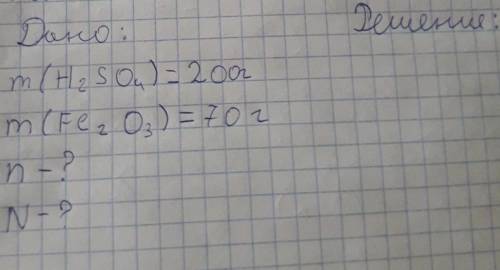 Дано:
Решение:
m(H₂SO₄)=200г
m(Fe₂O₃)=70г
n-?
N-?